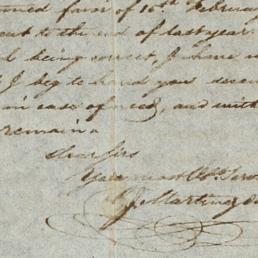 favor of 16th Februar
to the end of last year.
being correct, I have
I beg to hand you
in case of need, and with
remain
Dear Sirs
Your most Obt. Serv
J. Martin